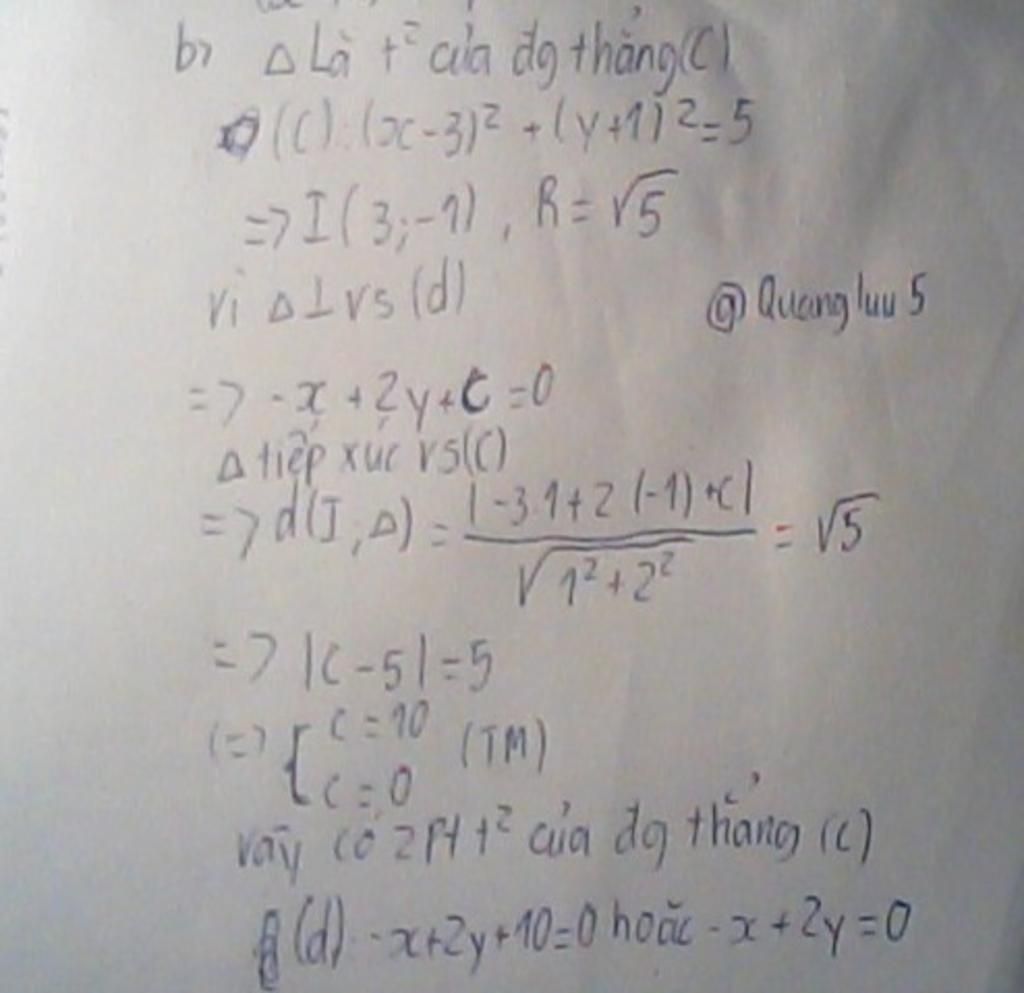 b) Δ Là t² của đg thẳng (C)
(C): (x-3)² + (y+1)² = 5
=> I(3;-1), R = √5
vì Δ ⊥ vs (d)
@Quangluu5
=> -x + 2y + C = 0
Δ tiếp xúc vs (C)
=> d(I,Δ) = |-3.1+2(-1)+c| / √1²+2² = √5
=> |c-5| = 5
(=> [ c = 10
c = 0 (TM)
vậy có 2 Pt t² của đg thẳng (c)
(d) -x+2y+10=0 hoặc -x+2y=0